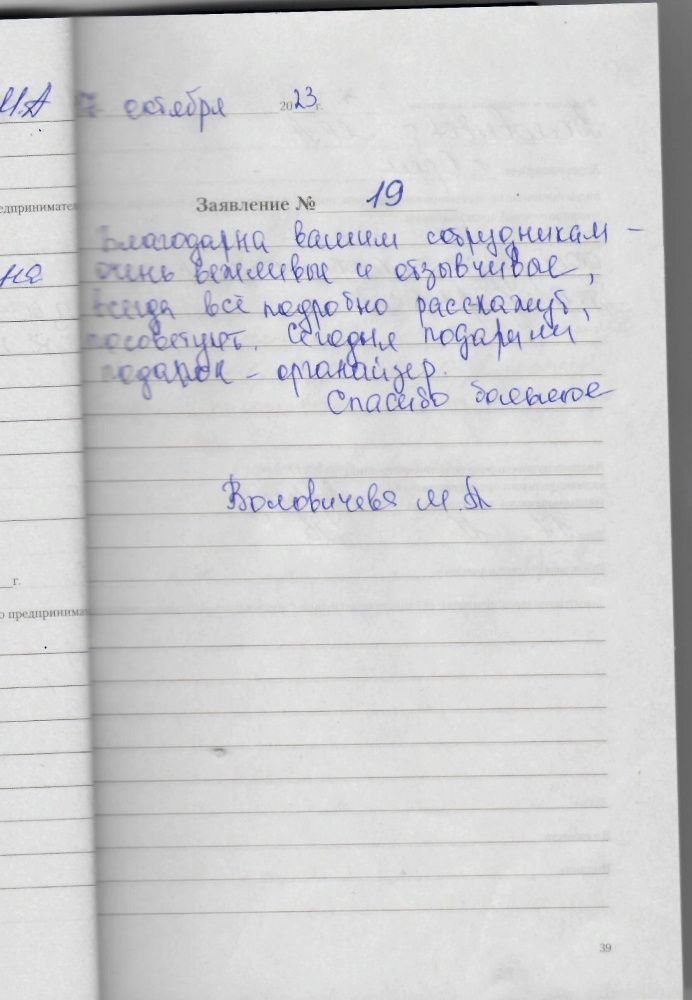 И.А 7 октября 2023 г.
Заявление № 19
едпринимател
Благодарна вашим сотрудникам –
очень вежливые и отзывчивые,
всегда всё подробно расскажут,
посоветуют. Сегодня подарили
подарок – органайзер.
Спасибо большое
Воловичева М.А
г.
о предпринимат
39